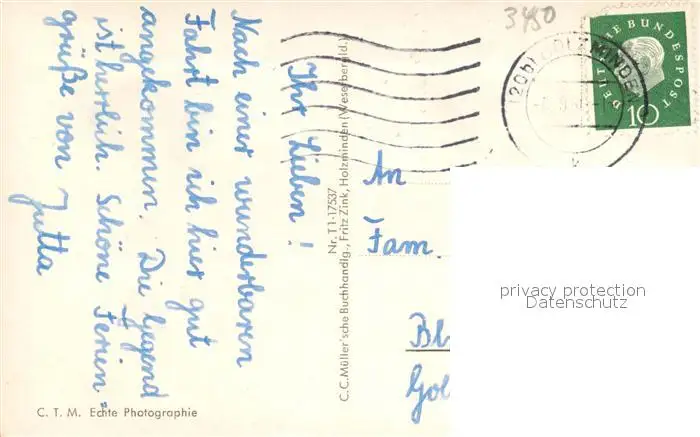 Ihr Lieben!
Nach einer wunderbaren
Fahrt bin ich hier gut
angekommen. Die Gegend
ist herrlich. Schöne Ferien=
grüße von Jutta
C. T. M. Echte Photographie
Nr. T1-17537
C.C.Müller'sche Buchhandlg., Fritz Zink, Holzminden (Weserbergld.)
3450
(20b) HOLZMINDEN
DEUTSCHE BUNDESPOST
10
An
Fam.
Bl
Gol
privacy protection
Datenschutz